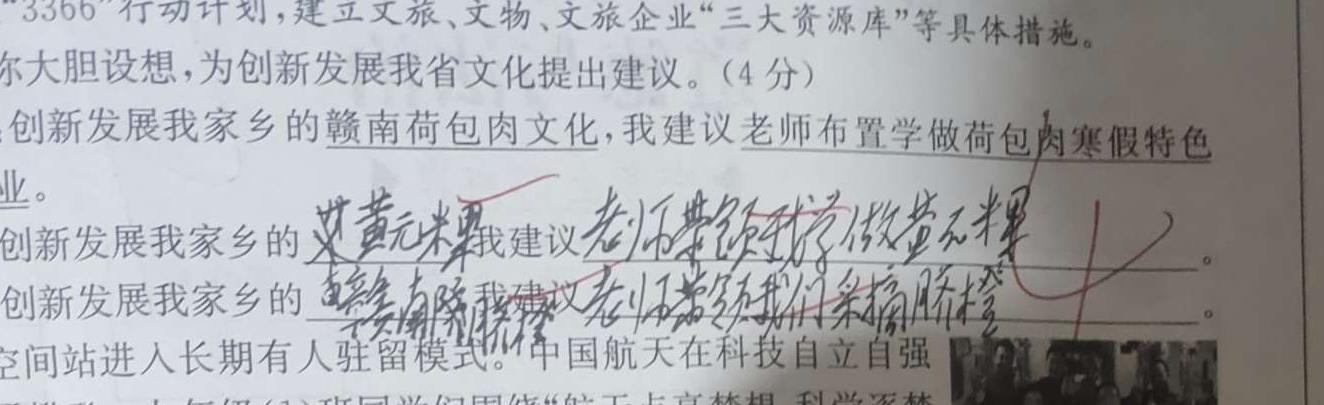 “3366”行动计划，建立文旅、文物、文旅企业“三大资源库”等具体措施。
你大胆设想，为创新发展我省文化提出建议。（4 分）
创新发展我家乡的赣南荷包肉文化，我建议老师布置学做荷包肉寒假特色
业。
创新发展我家乡的 黄元米果 我建议 老师带领我学做黄元米果 。
创新发展我家乡的 赣南脐橙 我建议 老师带领我们采摘脐橙 。
空间站进入长期有人驻留模式。中国航天在科技自立自强